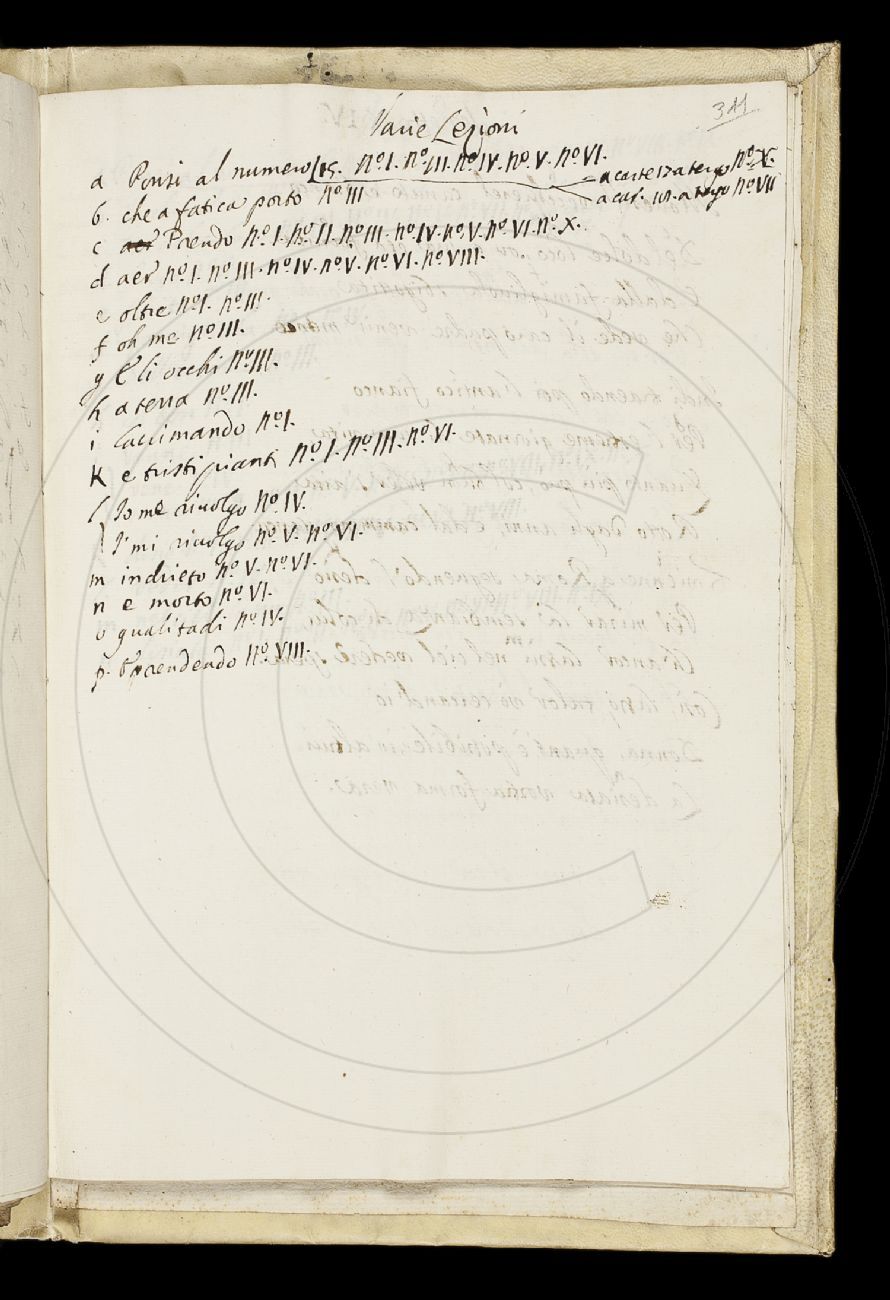 341
Varie Lezioni
a Ponsi al numero 15. nº. I. nº. III. nº. IV. nº. V. nº. VI. a carte 17 a tergo nº. X.
a car. 101. a tergo nº. VII
b. che a fatica porto nº III
c aer Prendo nº. I. nº. II. nº. III. nº. IV. nº. V. nº. VI. nº. X.
d aer nº. I. nº. III. nº. IV. nº. V. nº. VI. nº. VIII.
e oltre nº. I. nº. III.
f oh me nº. III.
g E li occhi nº. III.
h a terra nº. III.
i Laccimando nº. I.
K e tristi pianti nº. I. nº. III. nº. VI.
l Io me rivolgo nº. IV.
I' mi rivolgo nº. V. nº. VI.
m indrieto nº. V. nº. VI.
n e morto nº. VI.
o qualitadi nº. IV.
p. E prendendo nº. VIII.